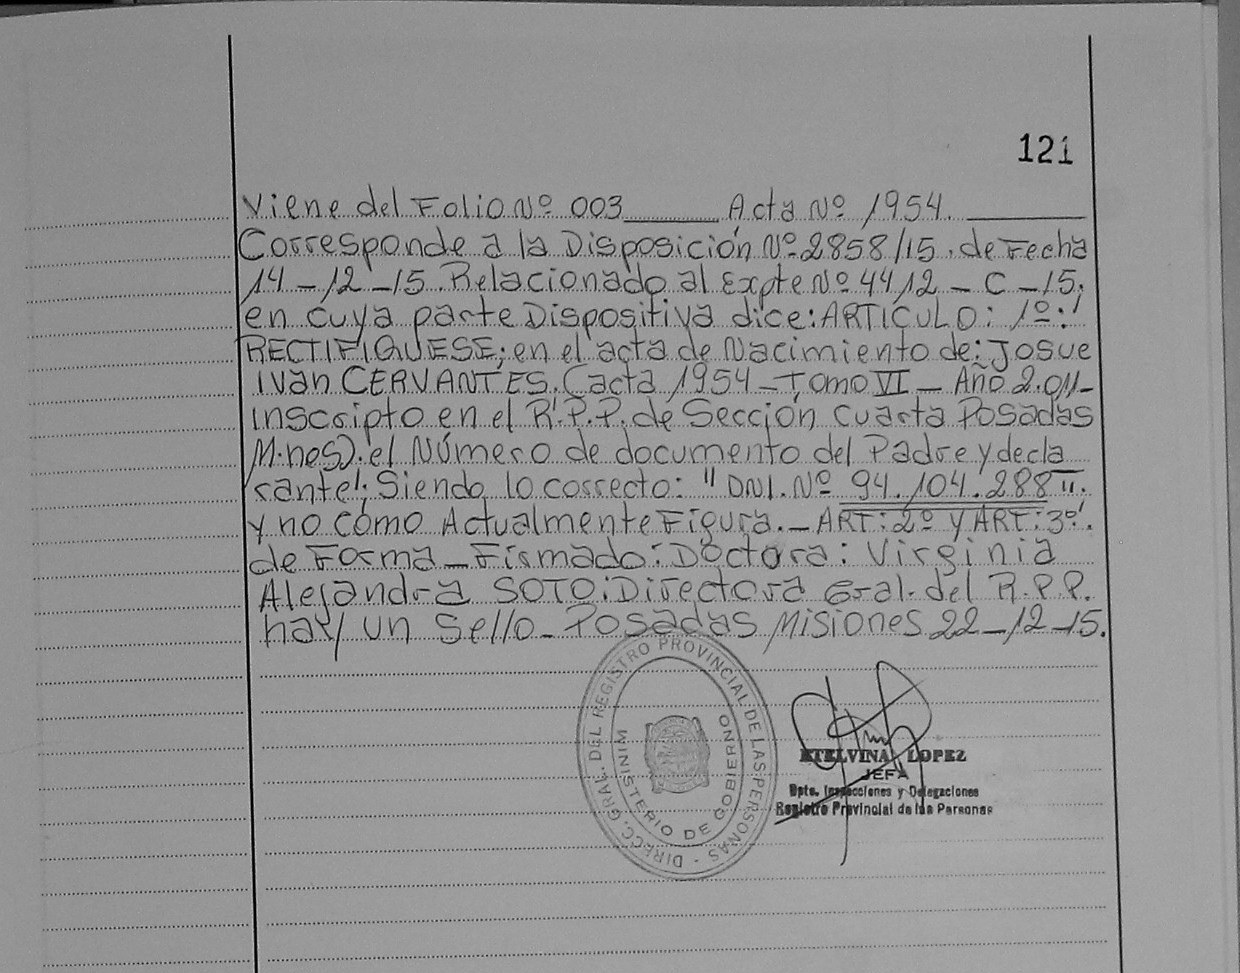 121
Viene del Folio Nº 003______ Acta Nº 1954.________
Corresponde a la Disposición Nº 2858/15, de Fecha
14-12-15. Relacionado al Expte Nº 4412-C-15,
en cuya parte Dispositiva dice: ARTICULO: 1º:
RECTIFIQUESE; en el acta de Nacimiento de: Josue
Ivan CERVANTES, (acta 1954-Tomo VI-Año 2.011-
inscripto en el R.P.P. de Sección Cuarta Posadas
M.nes). el Número de documento del Padre y decla
rante; Siendo lo correcto: "DNI. Nº 94.104.288".
y no como Actualmente Figura.- ART: 2º y ART: 3º.
de Forma-Firmado: Doctora: Virginia
Alejandra SOTO: Directora Gral. del R.P.P.
hay un Sello-Posadas Misiones 22-12-15.
DIRECC. GRAL. DEL REGISTRO PROVINCIAL DE LAS PERSONAS -
MINISTERIO DE GOBIERNO
ETELVINA LOPEZ
JEFA
Dpto. Inspecciones y Delegaciones
Registro Provincial de las Personas